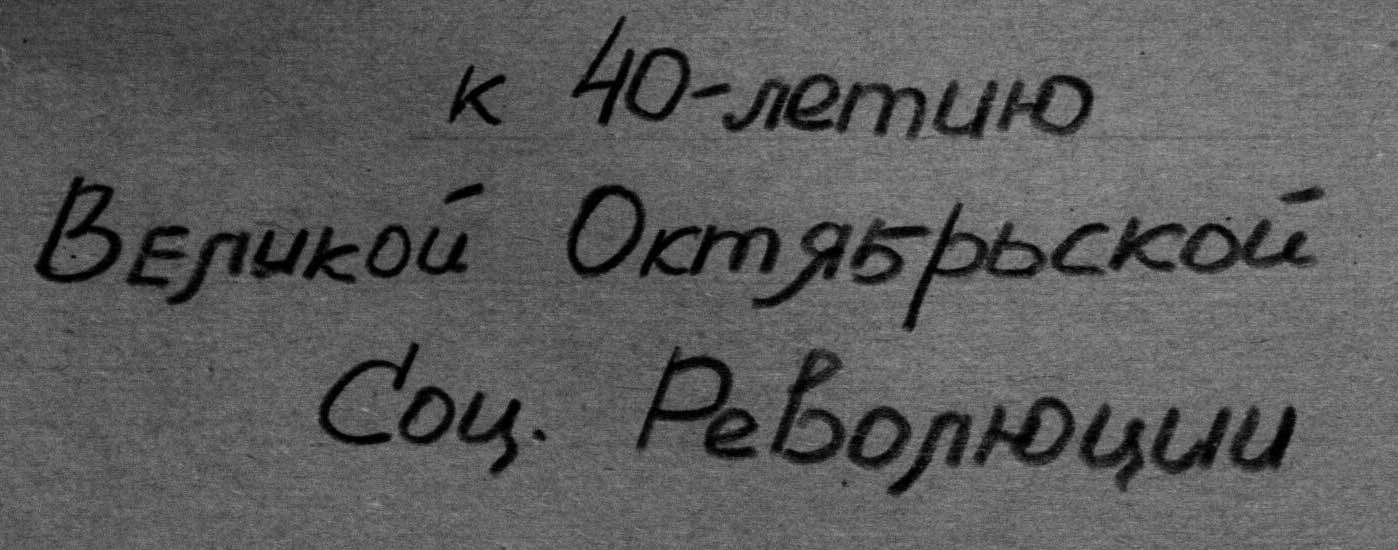 к 40-летию
Великой Октябрьской
Соц. Революции